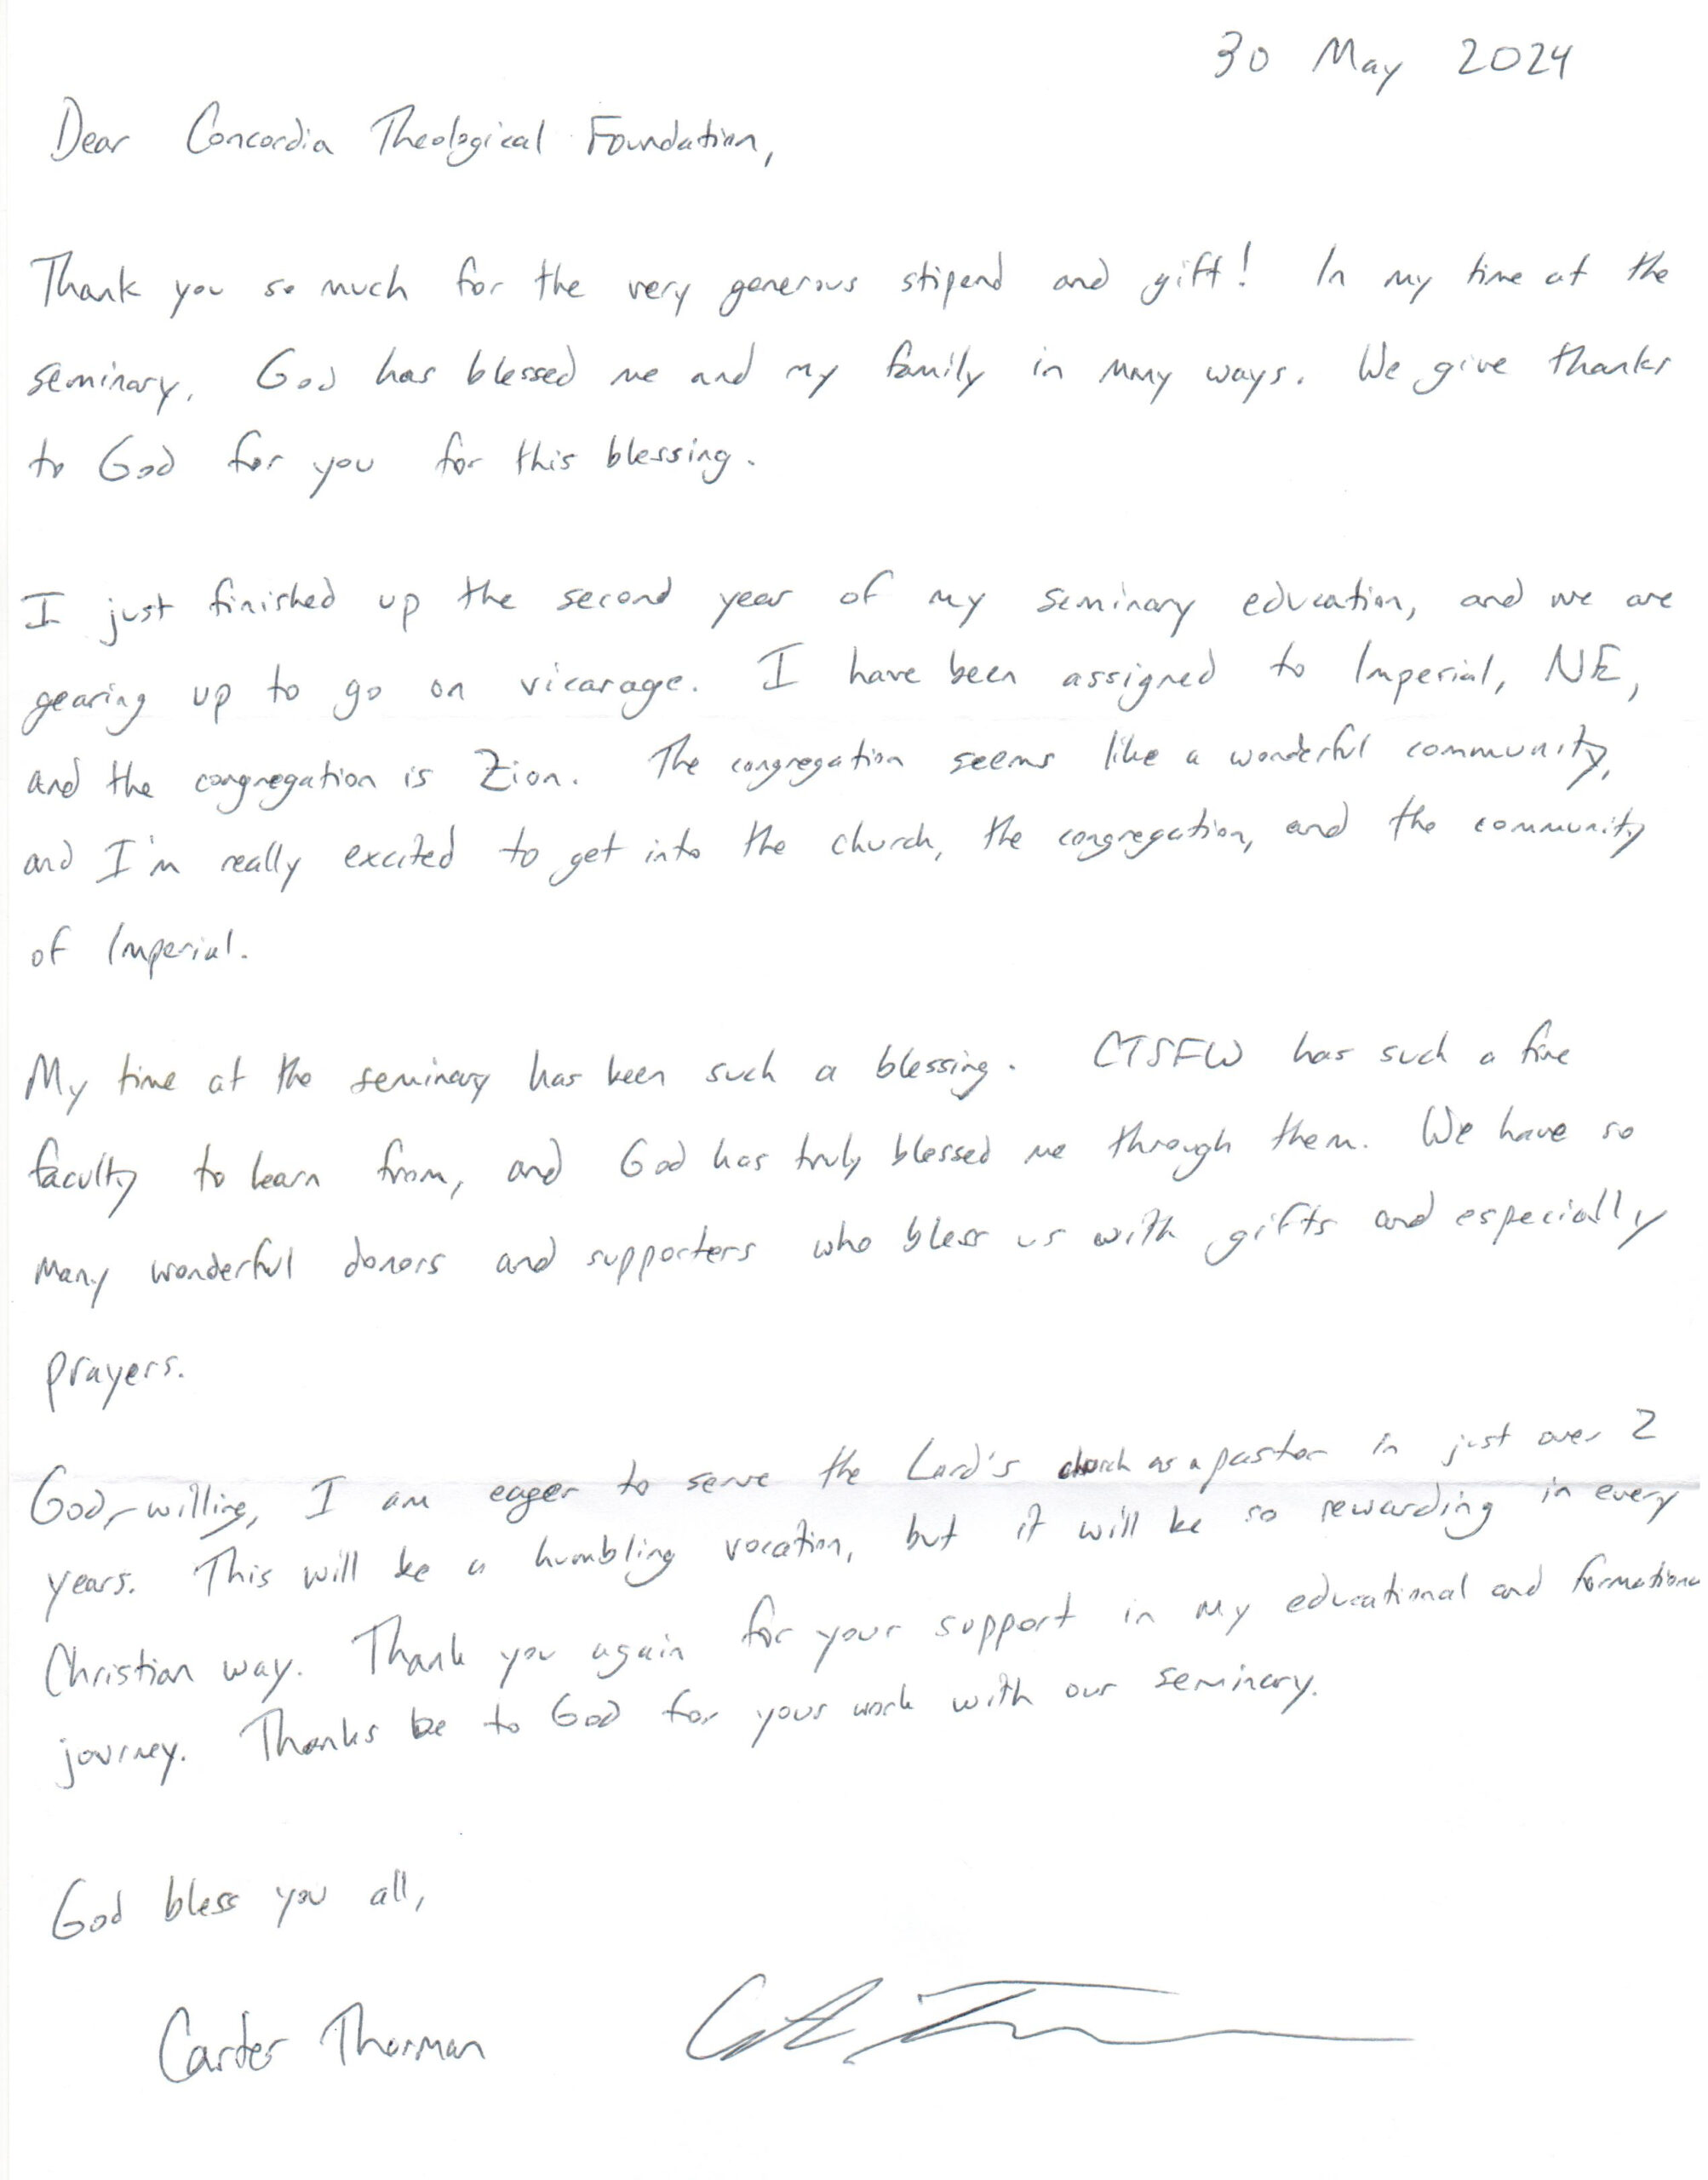 30 May 2024
Dear Concordia Theological Foundation,
Thank you so much for the very generous stipend and gift! In my time at the
seminary, God has blessed me and my family in many ways. We give thanks
to God for you for this blessing.
I just finished up the second year of my seminary education, and we are
gearing up to go on vicarage. I have been assigned to Imperial, NE,
and the congregation is Zion. The congregation seems like a wonderful community,
and I'm really excited to get into the church, the congregation, and the community
of Imperial.
My time at the seminary has been such a blessing. CTSFW has such a fine
faculty to learn from, and God has truly blessed me through them. We have so
many wonderful donors and supporters who bless us with gifts and especially
prayers.
God-willing, I am eager to serve the Lord's church as a pastor in just over 2
years. This will be a humbling vocation, but it will be so rewarding in every
Christian way. Thank you again for your support in my educational and formationa
journey. Thanks be to God for your work with our seminary.
God bless you all,
Carter Thorman